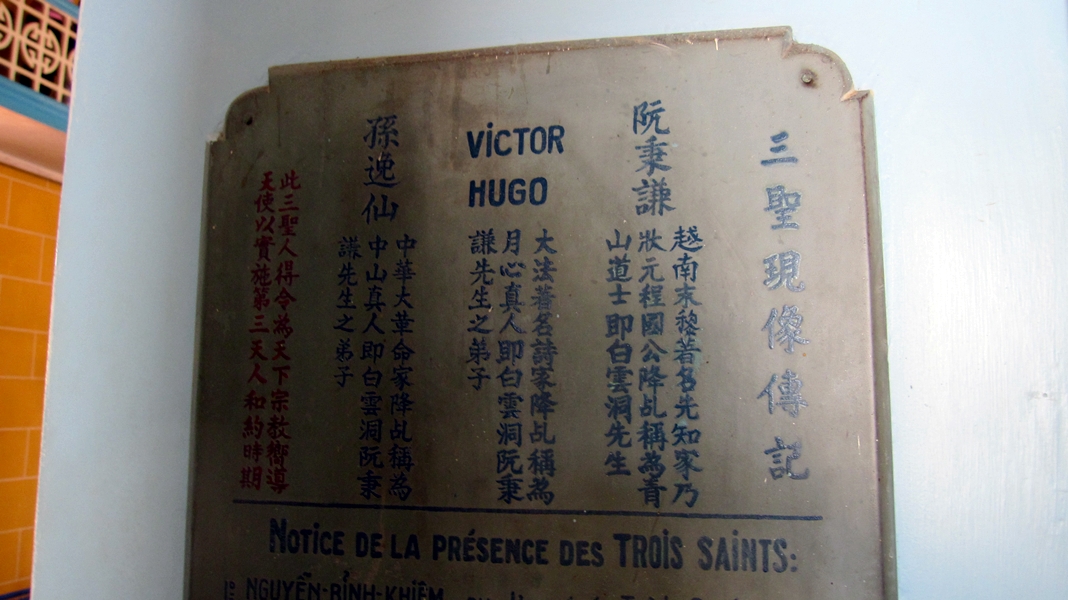 三聖現像傳記
阮秉謙
越南末黎著名先知家乃
狀元程國公降乩稱為青
山道士即白雲洞先生
VICTOR
HUGO
大法著名詩家降乩稱為
月心真人即白雲洞阮秉
謙先生之弟子
孫逸仙
中華大革命家降乩稱為
中山真人即白雲洞阮秉
謙先生之弟子
此三聖人得令為天下宗教嚮導
天使以實施第三天人和約時期
NOTICE DE LA PRÉSENCE DES TROIS SAINTS:
1º NGUYỄN-BỈNH-KHIÊM